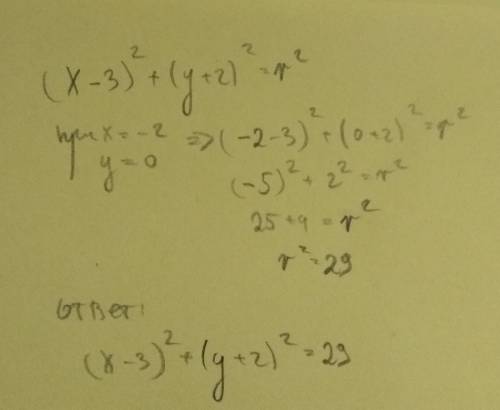 (x-3)² + (y+2)² = r²
при x = -2 => (-2-3)² + (0+2)² = r²
y = 0
(-5)² + 2² = r²
25 + 4 = r²
r² = 29
Ответ:
(x-3)² + (y+2)² = 29